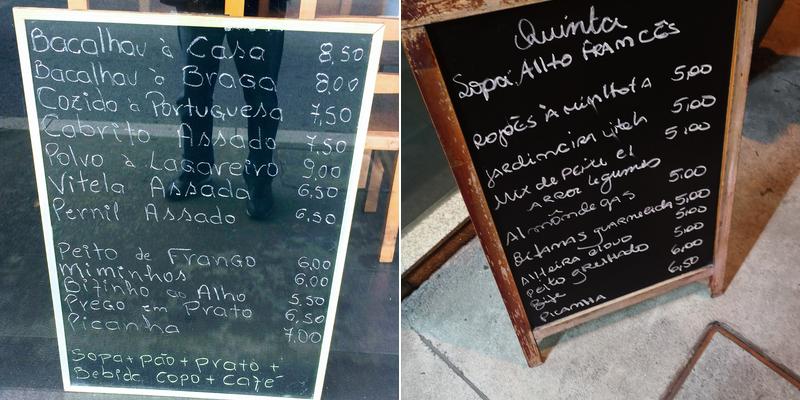 Bacalhau à Casa 8,50
Bacalhau à Braga 8,00
Cozido à Portuguesa 7,50
Cabrito Assado 7,50
Polvo à Lagareiro 9,00
Vitela Assada 6,50
Pernil Assado 6,50
Peito de Frango 6,00
Miminhos 6,00
Bitinho ao Alho 5,50
Prego em Prato 6,50
Picanha 7,00
Sopa + pão + prato +
Bebida copo + Café
Quinta
Sopa: Alho FRANCÊS
Rojões à Minhota 5,00
Jardineira 5,00
Mix de Peixe 5,00
Arroz legumes
Almôndegas 5,00
Bifanas guarnecida 5,00
Alheira c/ovo 5,00
Peito grelhado 5,00
Bife 6,00
Picanha 6,50